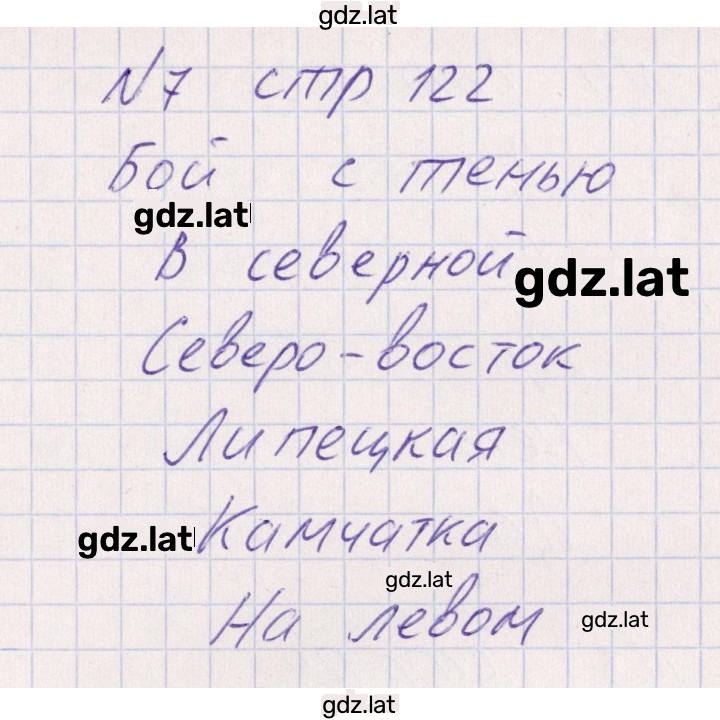 gdz.lat
N7 стр 122
Бой с тенью
gdz.lat
В северной
gdz.lat
Северо-восток
Липецкая
gdz.lat
Камчатка
gdz.lat
На левом
gdz.lat
gdz.lat